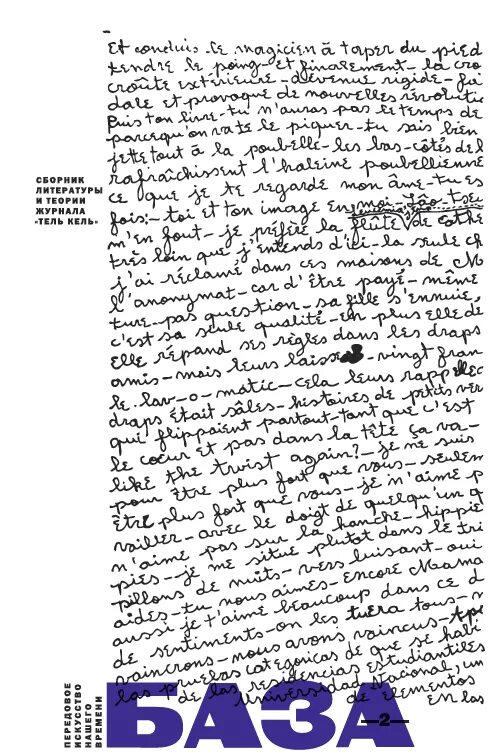 Et conclus-le magicien à taper du pied
tendre le poing-et finalement-la cro
croûte extérieure-devenue rigide-fai
dale et provoque de nouvelles révolutio
Puis ton livre-tu n'auras pas le temps de
parcequ'on rate le piquer-tu sais bien
jette tout à la poubelle-les bas-côtés del
rafraîchissent l'haleine poubellienne
ce que je te regarde mon âme-tu es
fois:-toi et ton image en moi-
m'en fout-je préfère la flûte de
très loin que j'entends d'ici-la seule ch
j'ai réclamé dans ces maisons de
l'anonymat-car d'être payé-même
ture-pas question-sa fille s'ennuie,
c'est sa seule qualité-en plus elle de
Elle répand ses règles dans les draps
amis-mais leurs laisse -vingt fran
le lav-o-matic-cela leurs rappelle
draps était sâles-histoires de petits ver
qui flippaient partout-tant que c'est
le cœur et pas dans la tête ça va-
like the twist again?-je ne suis
pour être plus fort que vous-seulem
être plus fort que vous-je n'aime p
vailler-avec le doigt de quelqu'un q
n'aime pas sur la hanche-hippie
pies-je me situe plutot dans le tri
pillons de nuits-vers luisant-oui
aides-tu nous aimes-encore
aussi je t'aime beaucoup dans ce d
de sentiments-on les tuera tous-n
vaincrons-nous avons vaincus-
las pruebas categoricas de que se habi
de las residencias estudiantiles
Universidad Nacional, un
de elementos
en los
СБОРНИК
ЛИТЕРАТУРЫ
И ТЕОРИИ
ЖУРНАЛА
«ТЕЛЬ КЕЛЬ»
ПЕРЕДОВОЕ
ИСКУССТВО
НАШЕГО
ВРЕМЕНИ
БАЗА
—2—